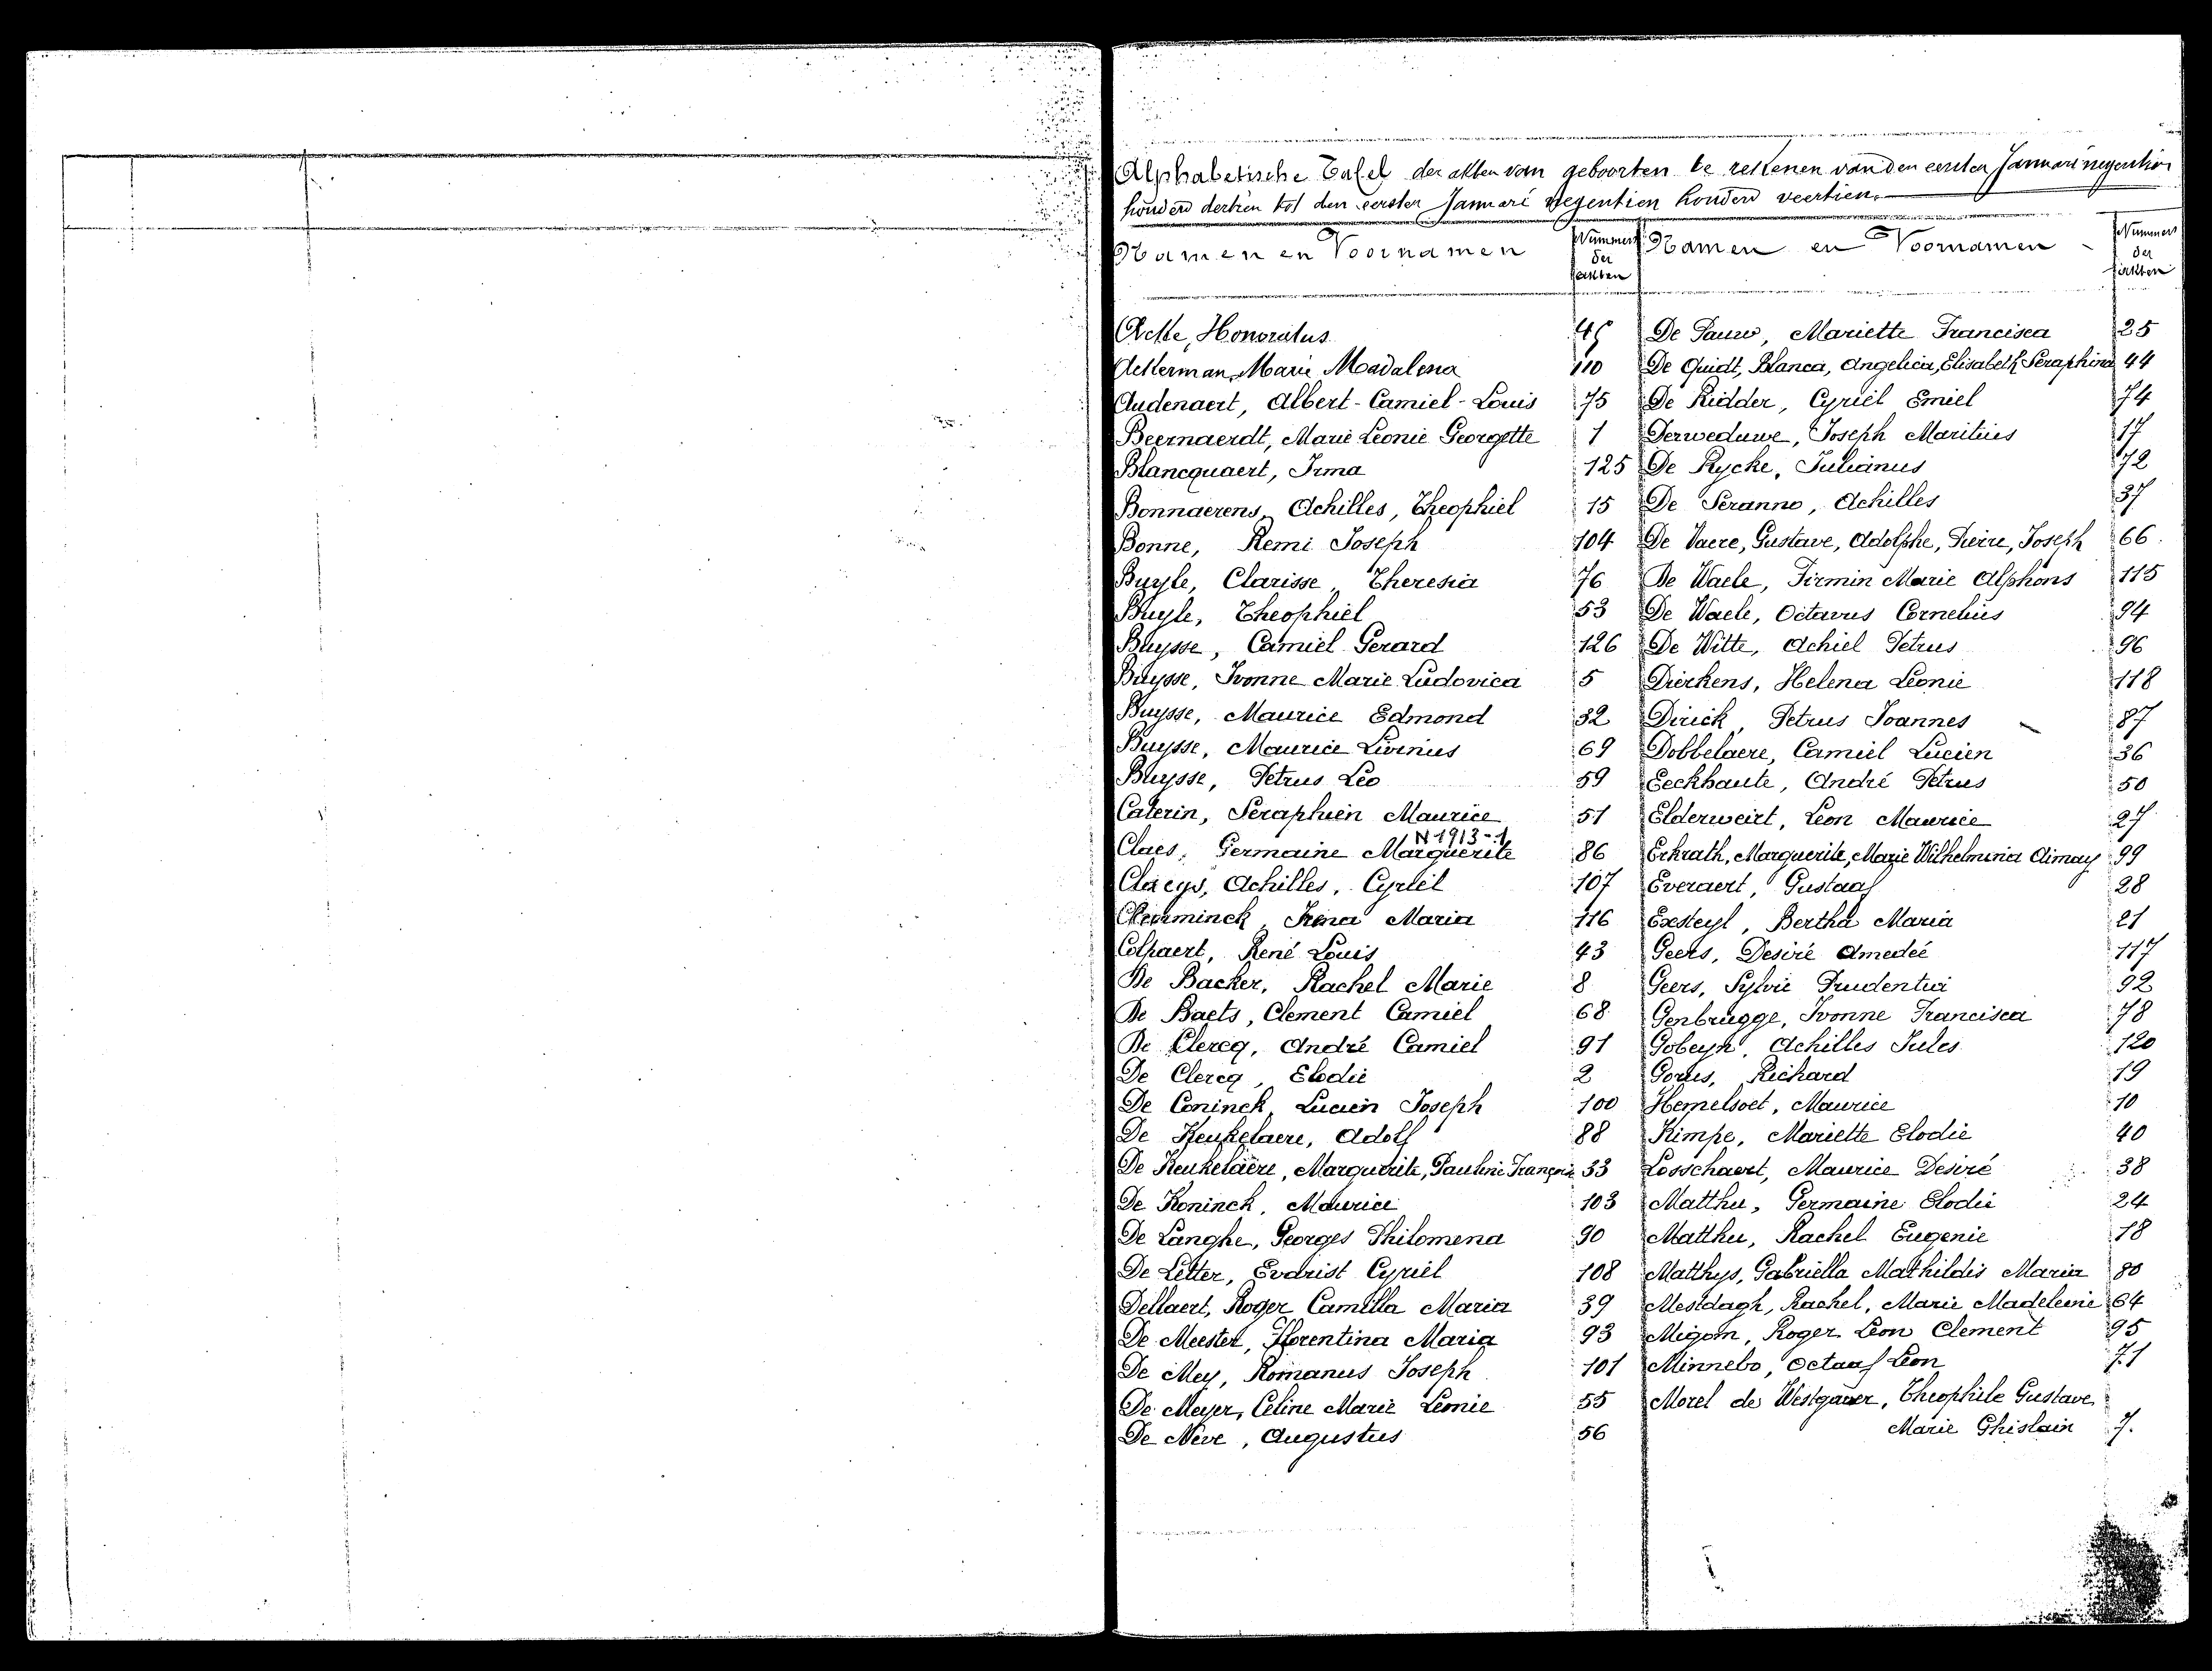 Alphabetische Tafel der akten van geboorten te rekenen van den eersten Januari negentien
honderd dertien tot den eersten Januari negentien honderd veertien.
Namen en Voornamen
Nummers
der
akten
Acke, Honoratus 45
Ackerman, Marie Madalena 110
Audenaert, Albert-Camiel-Louis 75
Beernaerdt, Marie Leonie Georgette 1
Blancquaert, Irma 125
Bonnaerens, Achilles, Theophiel 15
Bonne, Remi Joseph 104
Buyle, Clarisse, Theresia 76
Buyle, Theophiel 53
Buysse, Camiel Gerard 126
Buysse, Ivonne Marie Ludovica 5
Buysse, Maurice Edmond 32
Buysse, Maurice Livinus 69
Buysse, Petrus Leo 59
Caterin, Seraphien Maurice 51
N 1913-1
Claes, Germaine Marguerite 86
Claeys, Achilles, Cyriel 107
Clemminck, Irena Maria 116
Colpaert, René Louis 43
De Backer, Rachel Marie 8
De Baets, Clement Camiel 68
De Clercq, André Camiel 91
De Clercq, Elodie 2
De Coninck, Lucien Joseph 100
De Keukelaere, Adolf 88
De Keukelaere, Marguerite, Pauline Françoise 33
De Koninck, Maurice 103
De Langhe, Georges Philomena 90
De Letter, Evarist Cyriel 108
Dellaert, Roger Camilla Maria 39
De Meester, Florentina Maria 93
De Mey, Romanus Joseph 101
De Meyer, Celine Marie Leonie 55
De Nève, Augustus 56
Namen en Voornamen
Nummers
der
akten
De Pauw, Mariette Francisca 25
De Quidt, Blanca, Angelica, Elisabeth Seraphina 44
De Ridder, Cyriel Emiel 74
Derweduwe, Joseph Maritius 17
De Rycke, Julianus 72
De Seranno, Achilles 37
De Vaere, Gustave, Adolphe, Pierre, Joseph 66
De Waele, Firmin Marie Alphons 115
De Waele, Octavus Cornelius 94
De Witte, Achiel Petrus 96
Dierkens, Helena Leonie 118
Dirick, Petrus Joannes 87
Dobbelaere, Camiel Lucien 36
Eeckhaute, André Petrus 50
Elderweirt, Leon Maurice 27
Erkrath, Marguerite, Marie Wilhelmina Aimay 99
Everaert, Gustaaf 28
Exsteyl, Bertha Maria 21
Geers, Desiré Amedeé 117
Geers, Sylvie Prudentia 92
Genbrugge, Ivonne Francisca 78
Gobeyn, Achilles Jules 120
Gorus, Richard 19
Hemelsoet, Maurice 10
Kimpe, Mariette Elodie 40
Losschaert, Maurice Desiré 38
Matthu, Germaine Elodie 24
Matthu, Rachel Eugenie 18
Matthys, Gabriella Mathildis Maria 80
Mestdagh, Rachel, Marie Madeleine 64
Migom, Roger Leon Clement 95
Minnebo, Octaaf Leon 71
Morel de Westgaver, Theophile Gustave
Marie Ghislain 7.